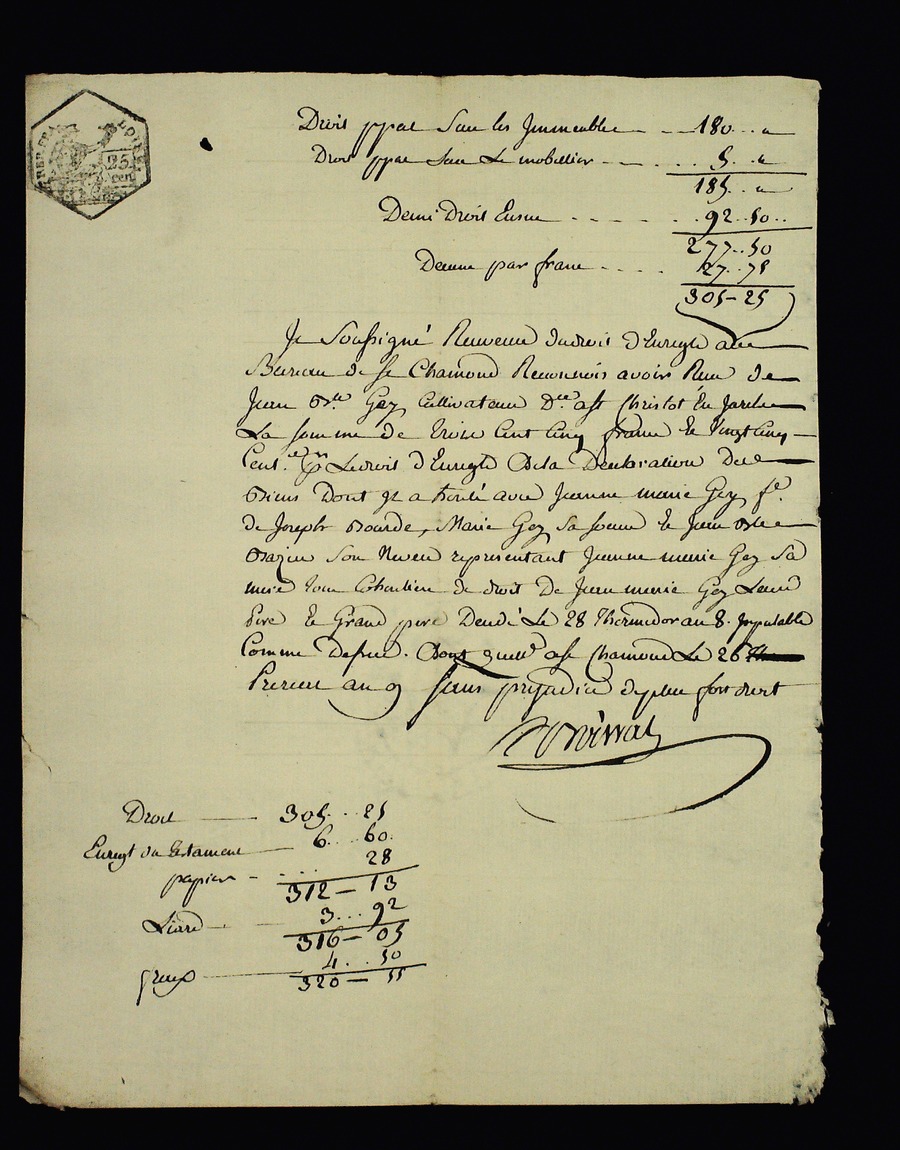 LOIRE
25 cen
Droit ppal Sur les Immeubles - - 180 .. "
Droit ppal sur Le mobillier - - - .. 5 .. "
185 .. "
Demi Droit Ensus - - - - .. 92 .. 50 ..
277 .. 50
Decime par franc - - - - 27 .. 75
305 - 25
Je Soussigné Receveur du droit d'Enregt au
Bureau de St Chamond Reconnois avoir Reçu de
Jean Bte Gey Cultivateur Dt a St Christot En Jarêt
La Somme de trois Cent Cinq francs et Vingt Cinq
Cent.es pr Le droit d'Enregt De la Declaration des
Biens Dont il a herité avec Jeanne marie Gey fe
de Joseph Bourde, Marie Gey Sa Soeur et Jean Bte
Bazin Son Neveu representant Jeanne marie Gey Sa
mere tous Cohéritiers de droit De Jean marie Gey Leur
Pere et Grand pere Décédé Le 28 Thermidor an 8. Imputable
Comme Dessus. Dont quitt a St Chamond Le 26
an 9 Sans préjudice de plus fort droit
Droit - 305 .. 25
Enregt du testament - 6 .. 60
papier - - .. 28
312 - 13
Liard - 3 ... 92
316 - 05
4 .. 50
320 - 55